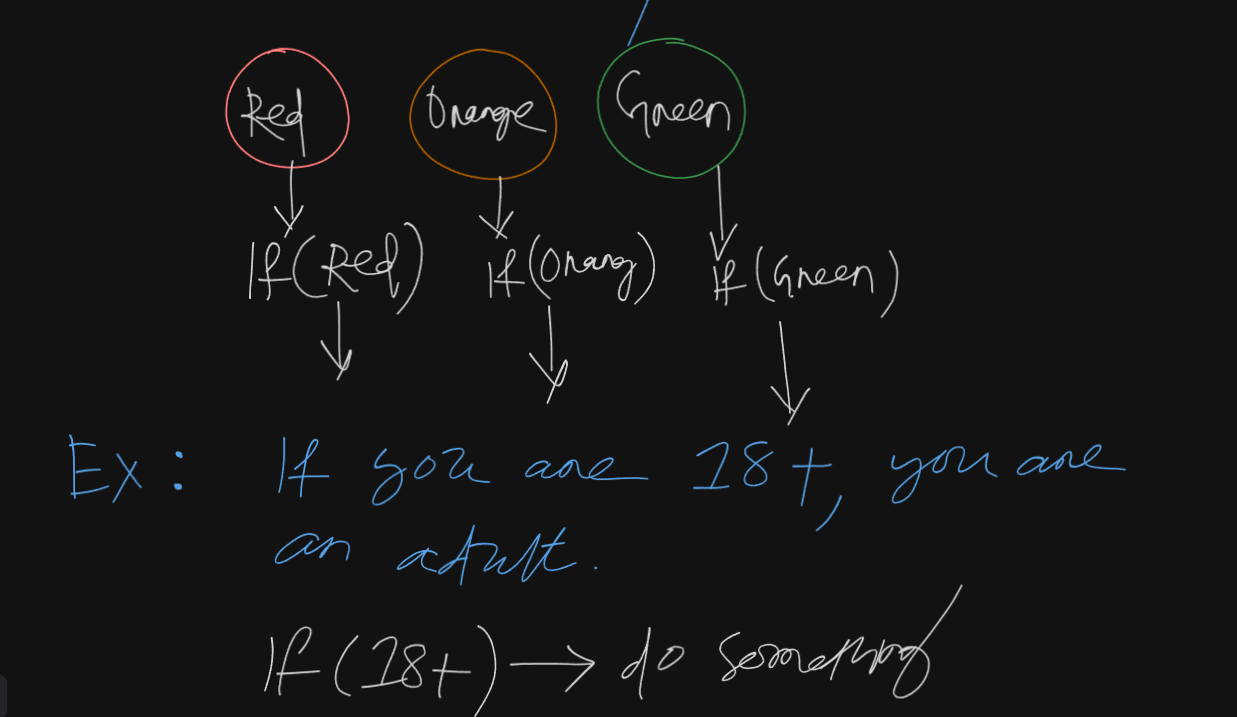 Red Orange Green
If (Red) If (Orang) If (Green)
Ex: If you are 18+, you are
an adult.
If (18+) → do something